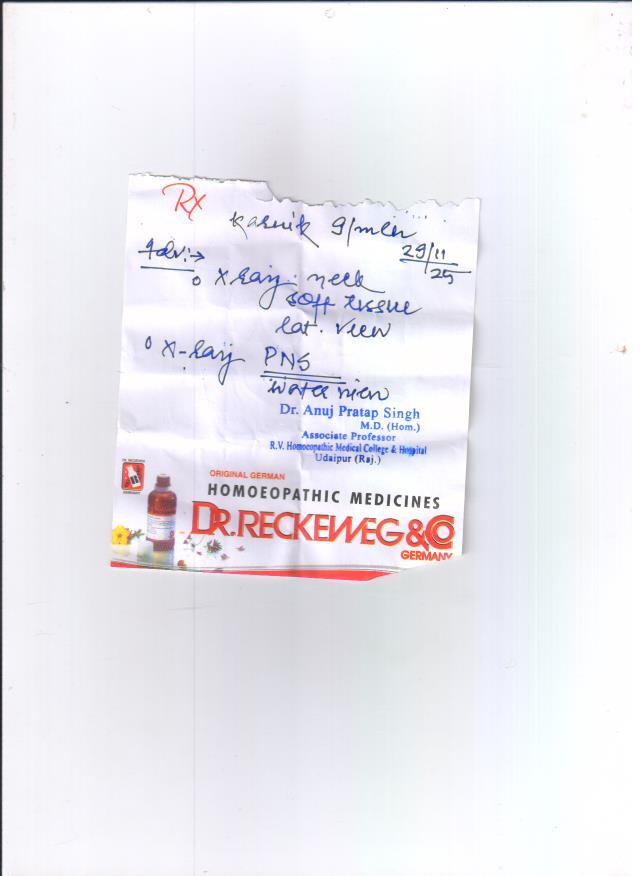 Rx
Kasnik 9/mch
29/11
25
Adv:→
o X-Ray: neck
soft tissue
lat. view
o X-Ray PNS
water view
Dr. Anuj Pratap Singh
M.D. (Hom.)
Associate Professor
R.V. Homoeopathic Medical College & Hospital
Udaipur (Raj.)
ORIGINAL GERMAN
HOMOEOPATHIC MEDICINES
DR. RECKEWEG & CO
GERMANY